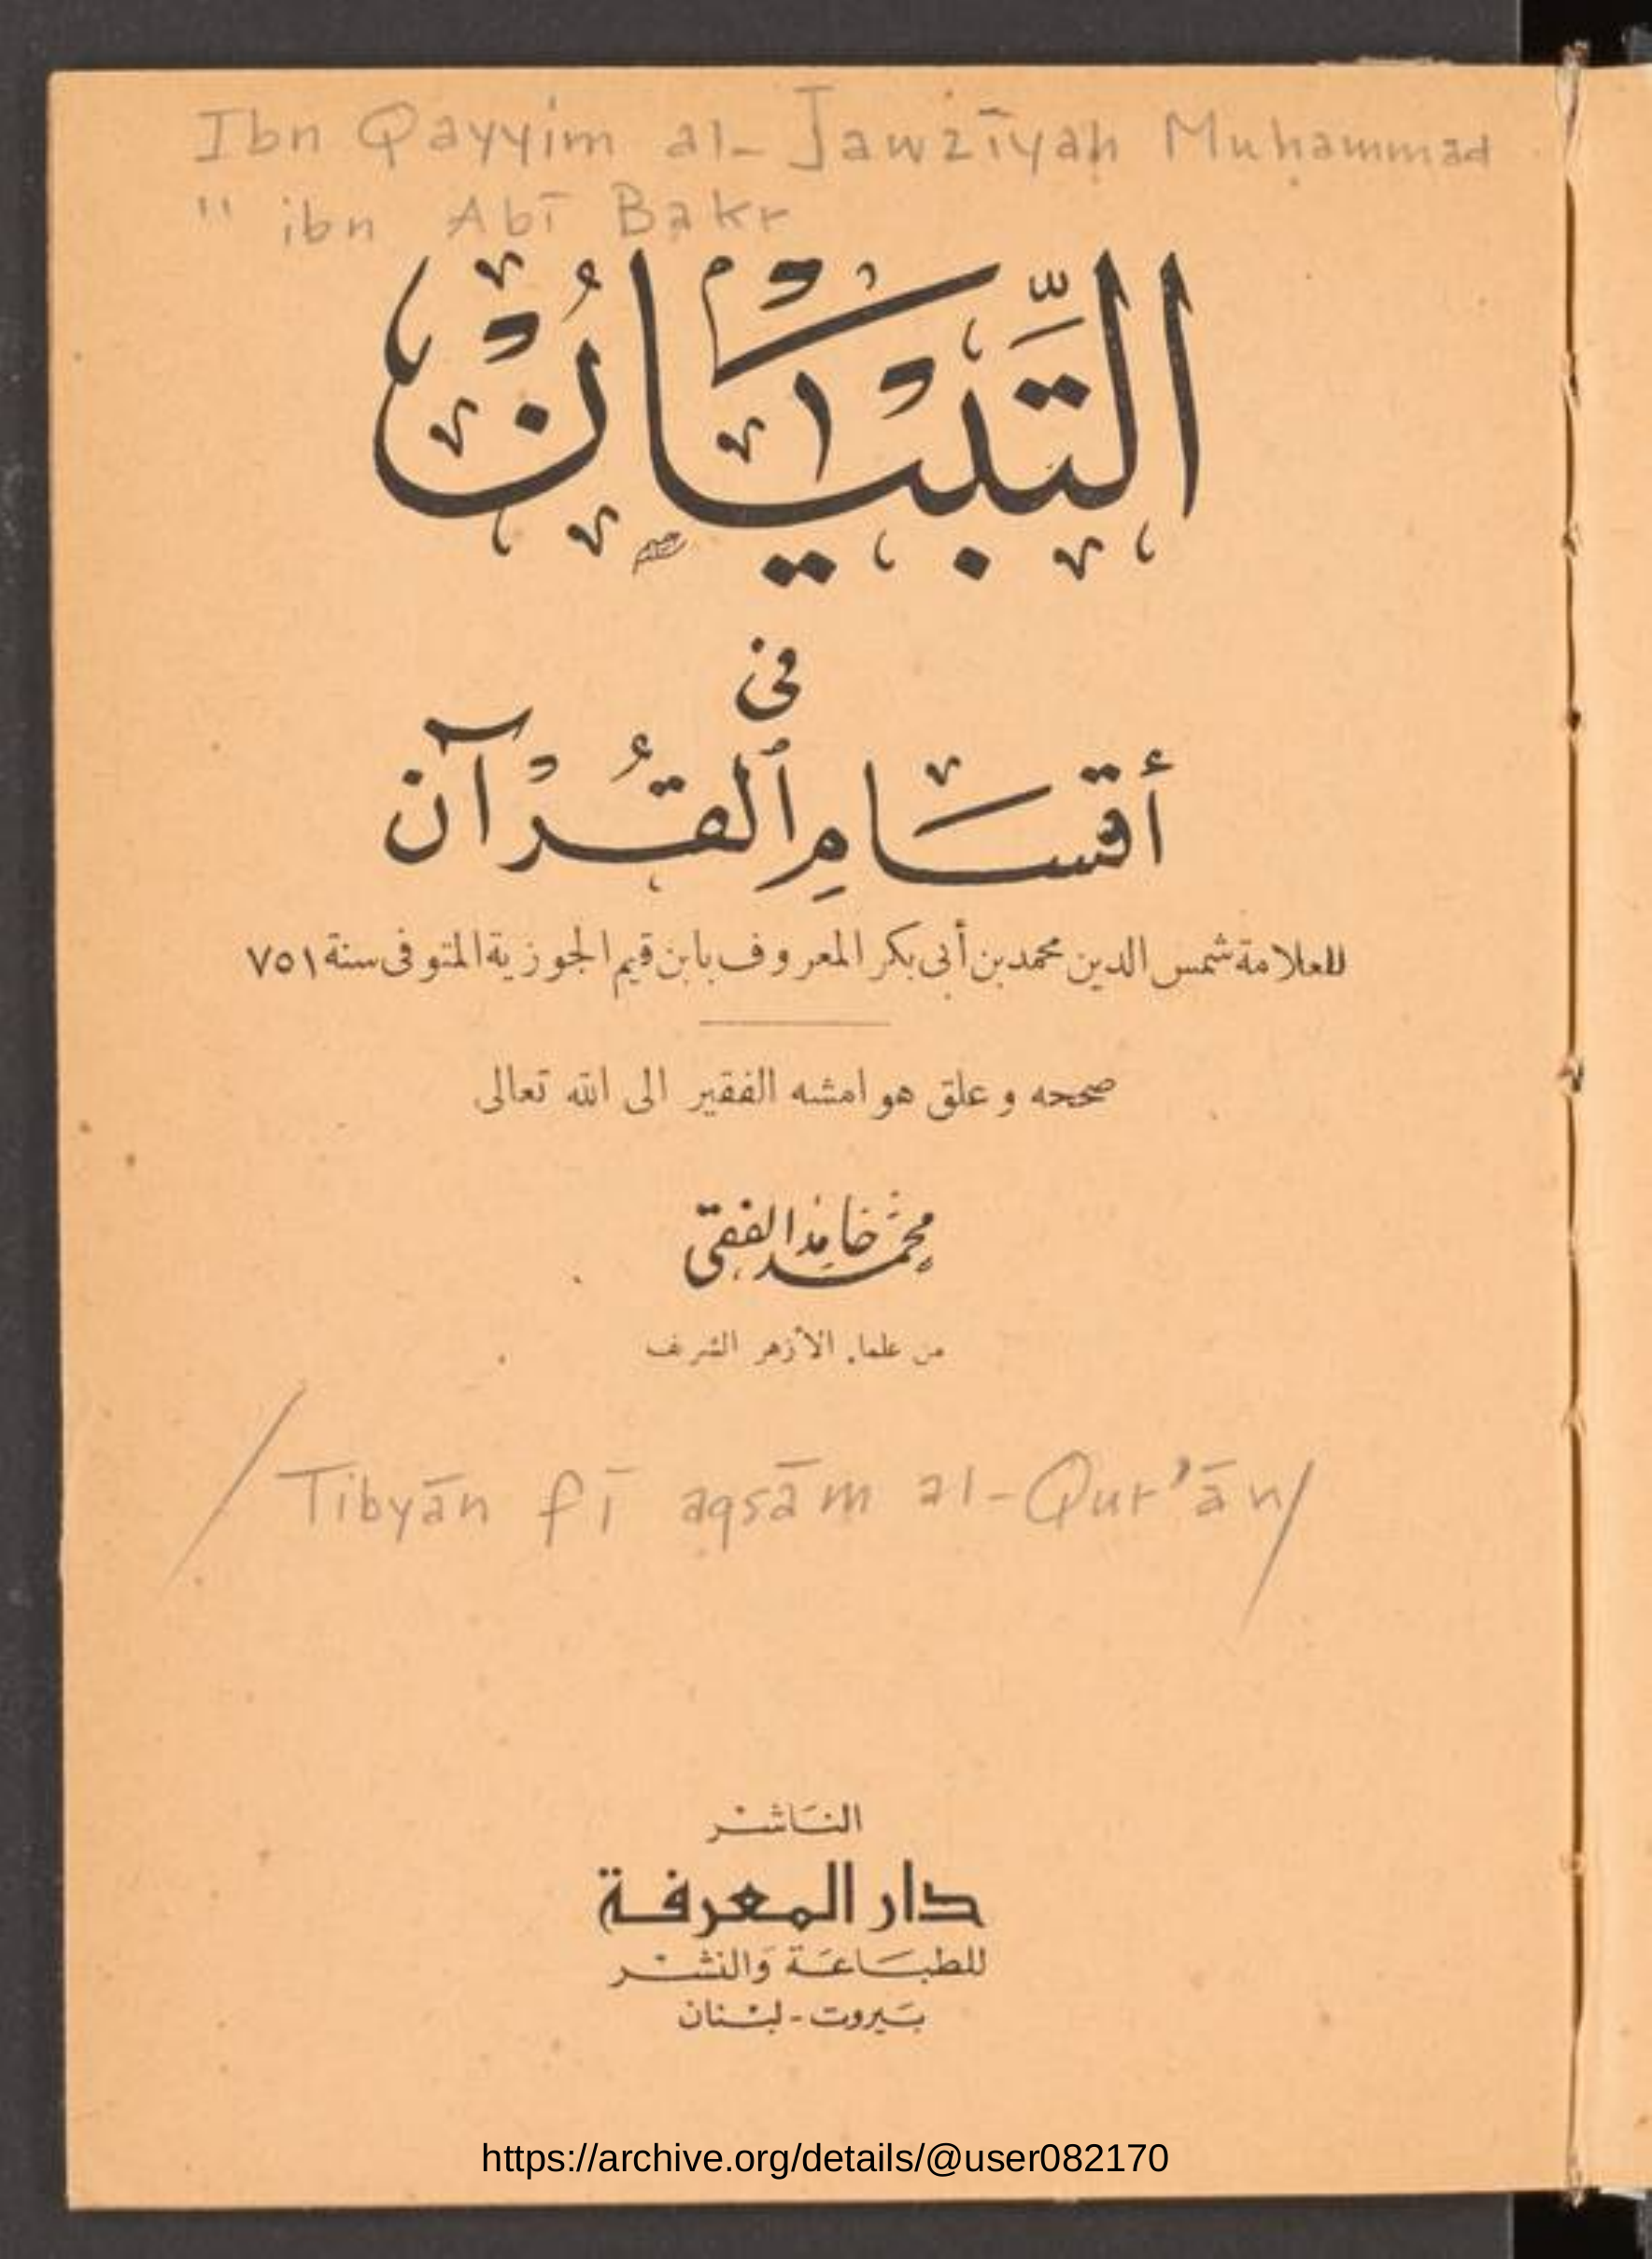 Ibn Qayyim al-Jawzīyah Muḥammad
" ibn Abī Bakr
التِّبْيَانُ
في
أقسَامِ ٱلقُرْآن
للعلامة شمس الدين محمد بن أبى بكر المعروف بابن قيم الجوزية المتوفى سنة ٧٥١
صححه و علق هوامشه الفقير الى الله تعالى
محمد حامد الفقى
من علماء الأزهر الشريف
/Tibyān fī aqsām al-Qur'ān/
الناشر
دار المعرفة
للطباعَة وَالنشر
بَيروت - لبْنان
https://archive.org/details/@user082170